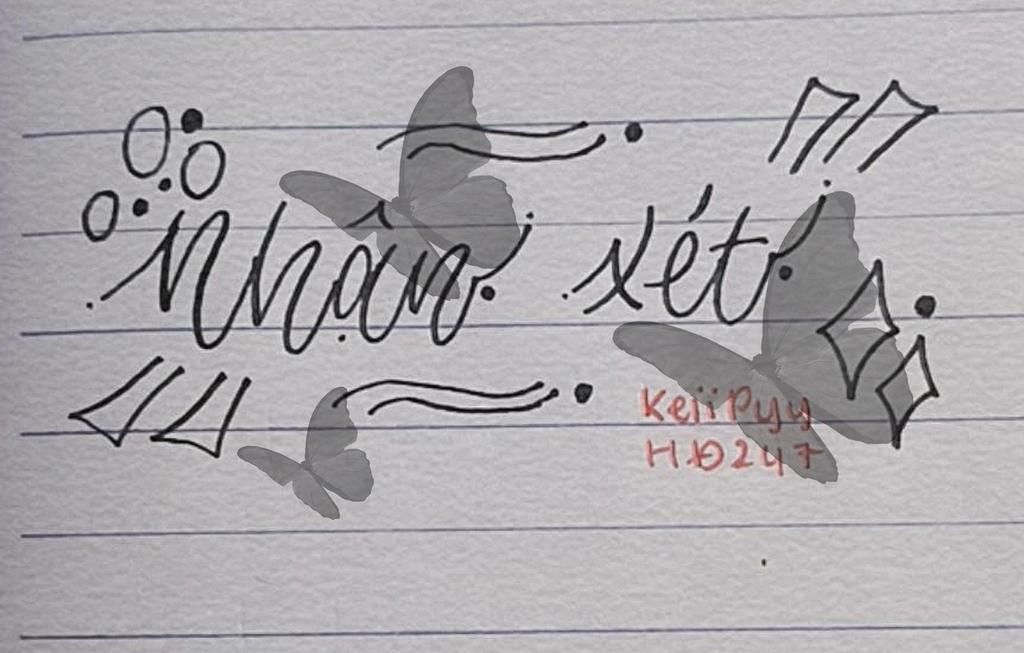 Nhận xét
KeiiPyy
H.Đ247